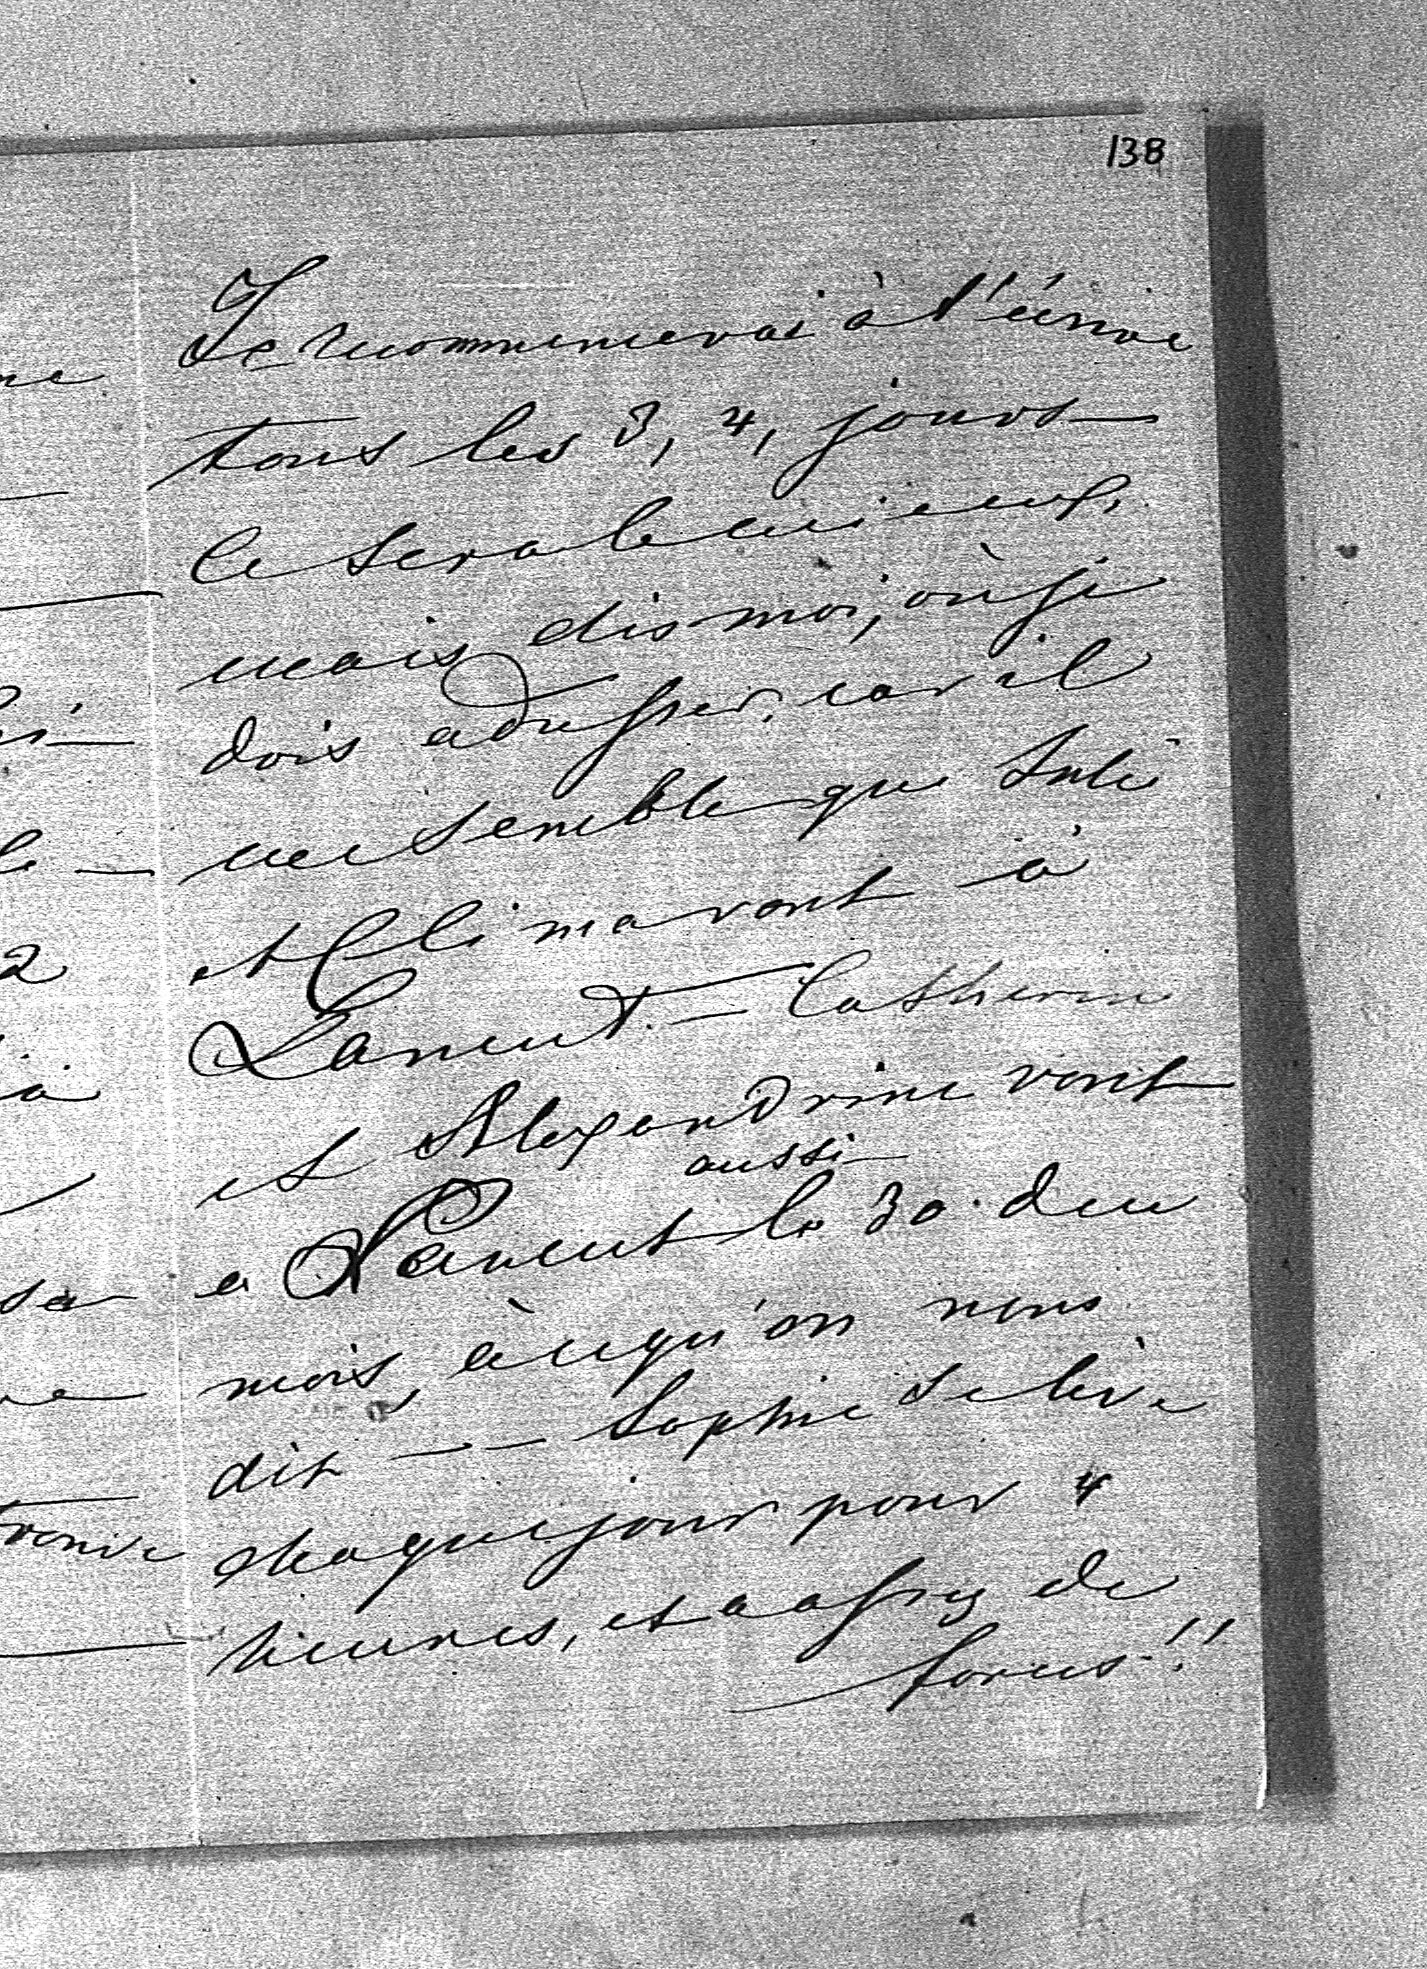 138
Je recommencerai à t'écrire
tous les 3, 4, jours
ce sera le mieux,
mais dis moi, où je
dois adresser, car il
me semble que Julie
et Clima vont à
Lament. — Catherine
et Alexandrine vont
aussi
a Lament le 30. du
mois, à ce qu'on nous
dit — — Sophie se lève
chaque jour pour 4
heures, et a assez de
forces !!